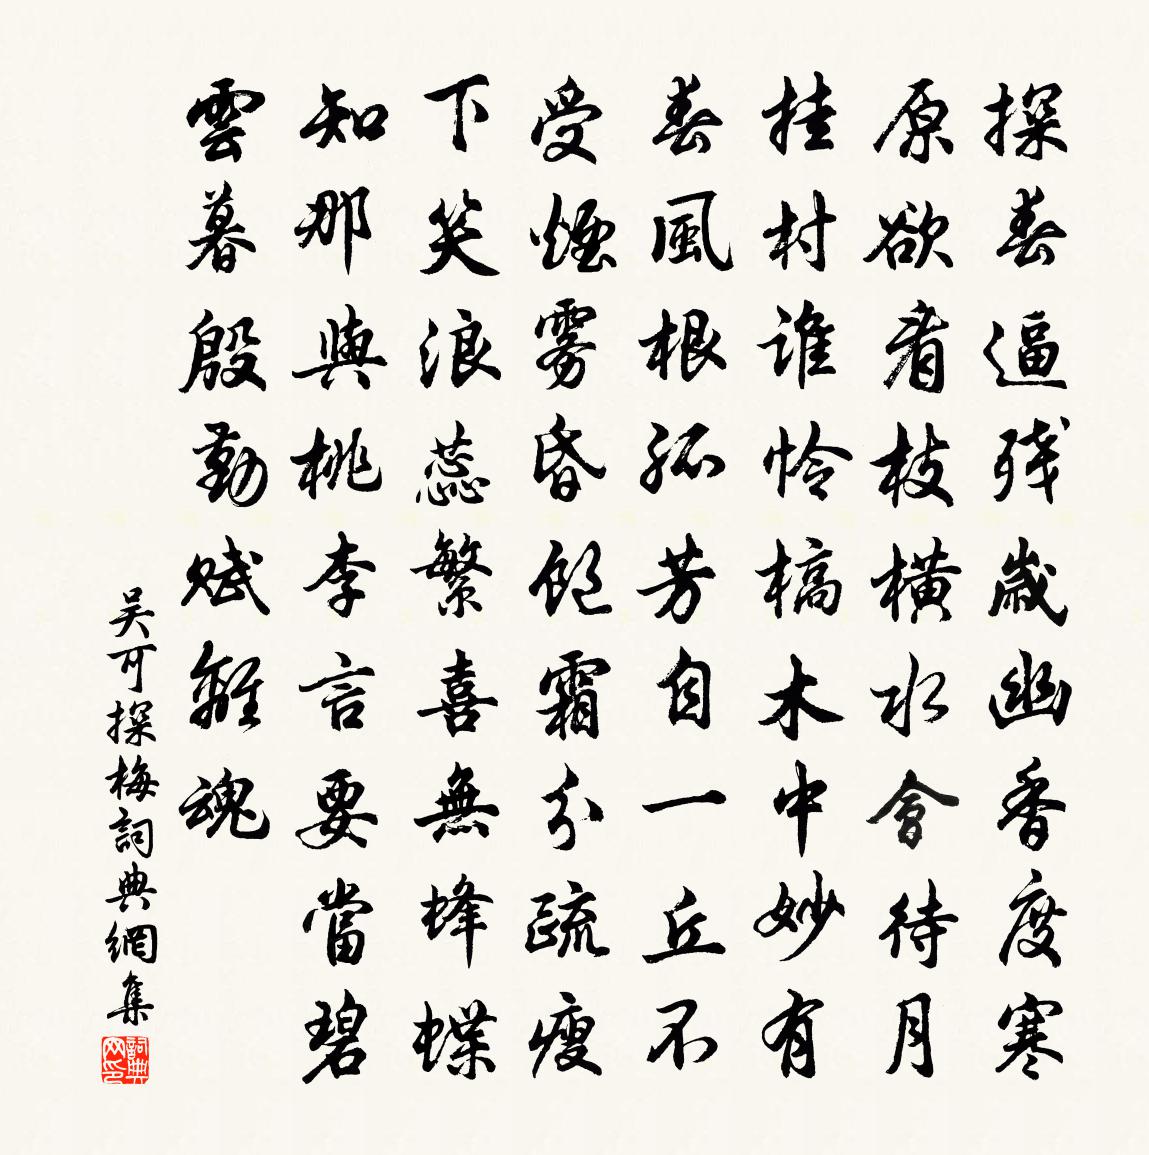 探春逼残歲幽香度寒
原欲看枝橫水會待月
挂村誰怜槁木中妙有
春風根孤芳自一丘不
受煙雾昏飽霜分疏瘦
下笑浪蕊繁喜無蜂蝶
知那與桃李言要當碧
雲暮殷勤賦離魂
吴可探梅詞典網集
詞典网印